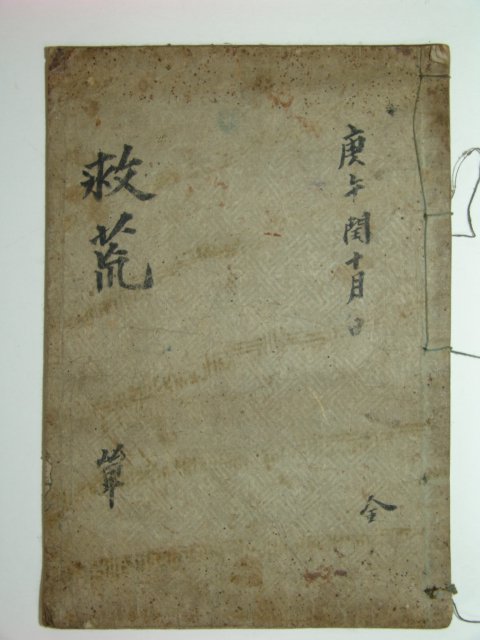 庚午閏十月日
全
救荒